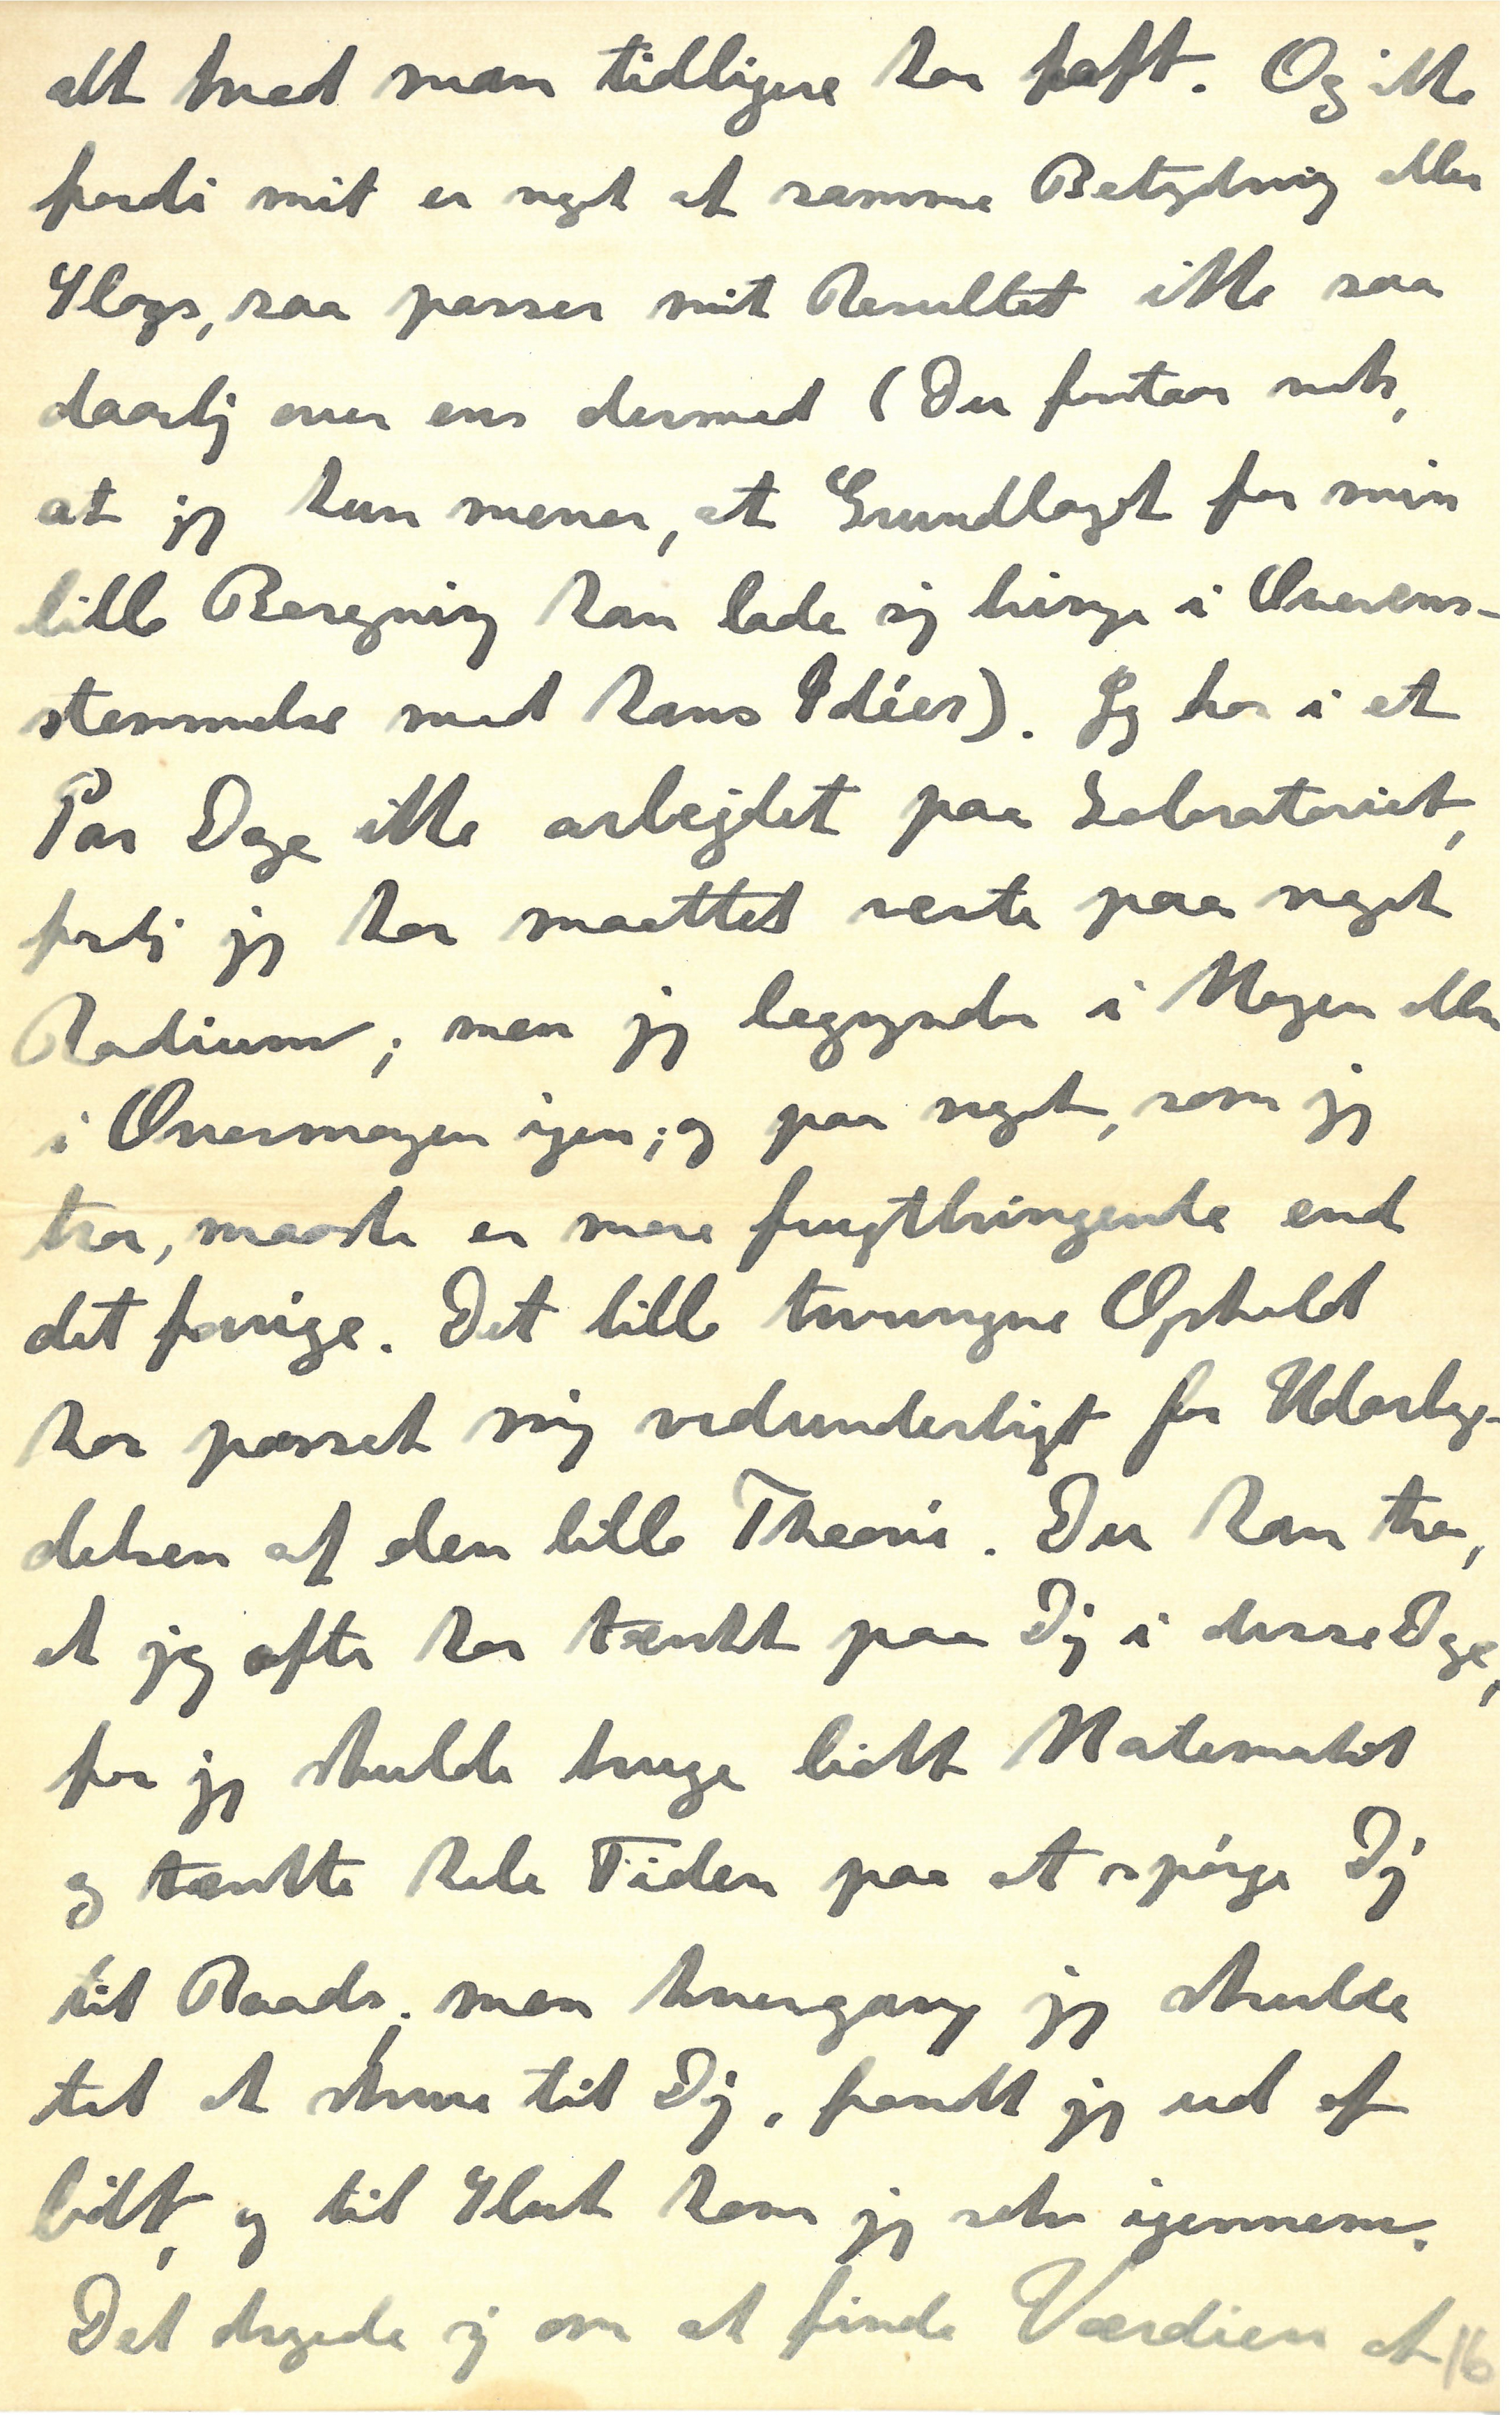 alt hvad man tidligere har haft. Og ikke
fordi mit er noget af samme Betydning eller
Slags, saa passer mit Resultat ikke saa
daarlig over ens dermed (Du forstaar nok,
at jeg kun mener, at Grundlaget for min
lille Beregning kan lade sig bringe i Overens-
stemmelse med hans Idéer). Jeg har i et
Par Dage ikke arbejdet paa Laboratoriet,
fordi jeg har maattet vente paa noget
Radium; men jeg begynder i Morgen eller
i Overmorgen igen; og paa noget, som jeg
tror, maaske er mere frugtbringende end
det forrige. Det lille tvungne Ophold
har passet mig vidunderligt for Udarbej-
delsen af den lille Theori. Du kan tro,
at jeg ofte har tænkt paa Dig i disse Dage,
for jeg skulde bruge lidt Matematik
og tænkte hele Tiden paa at spørge Dig
til Raads; men hvergang jeg skulde
til at skrive til Dig, fandt jeg ud af
lidt, og til Slut kom jeg selv igennem.
Det drejede sig om at finde Værdien af
16